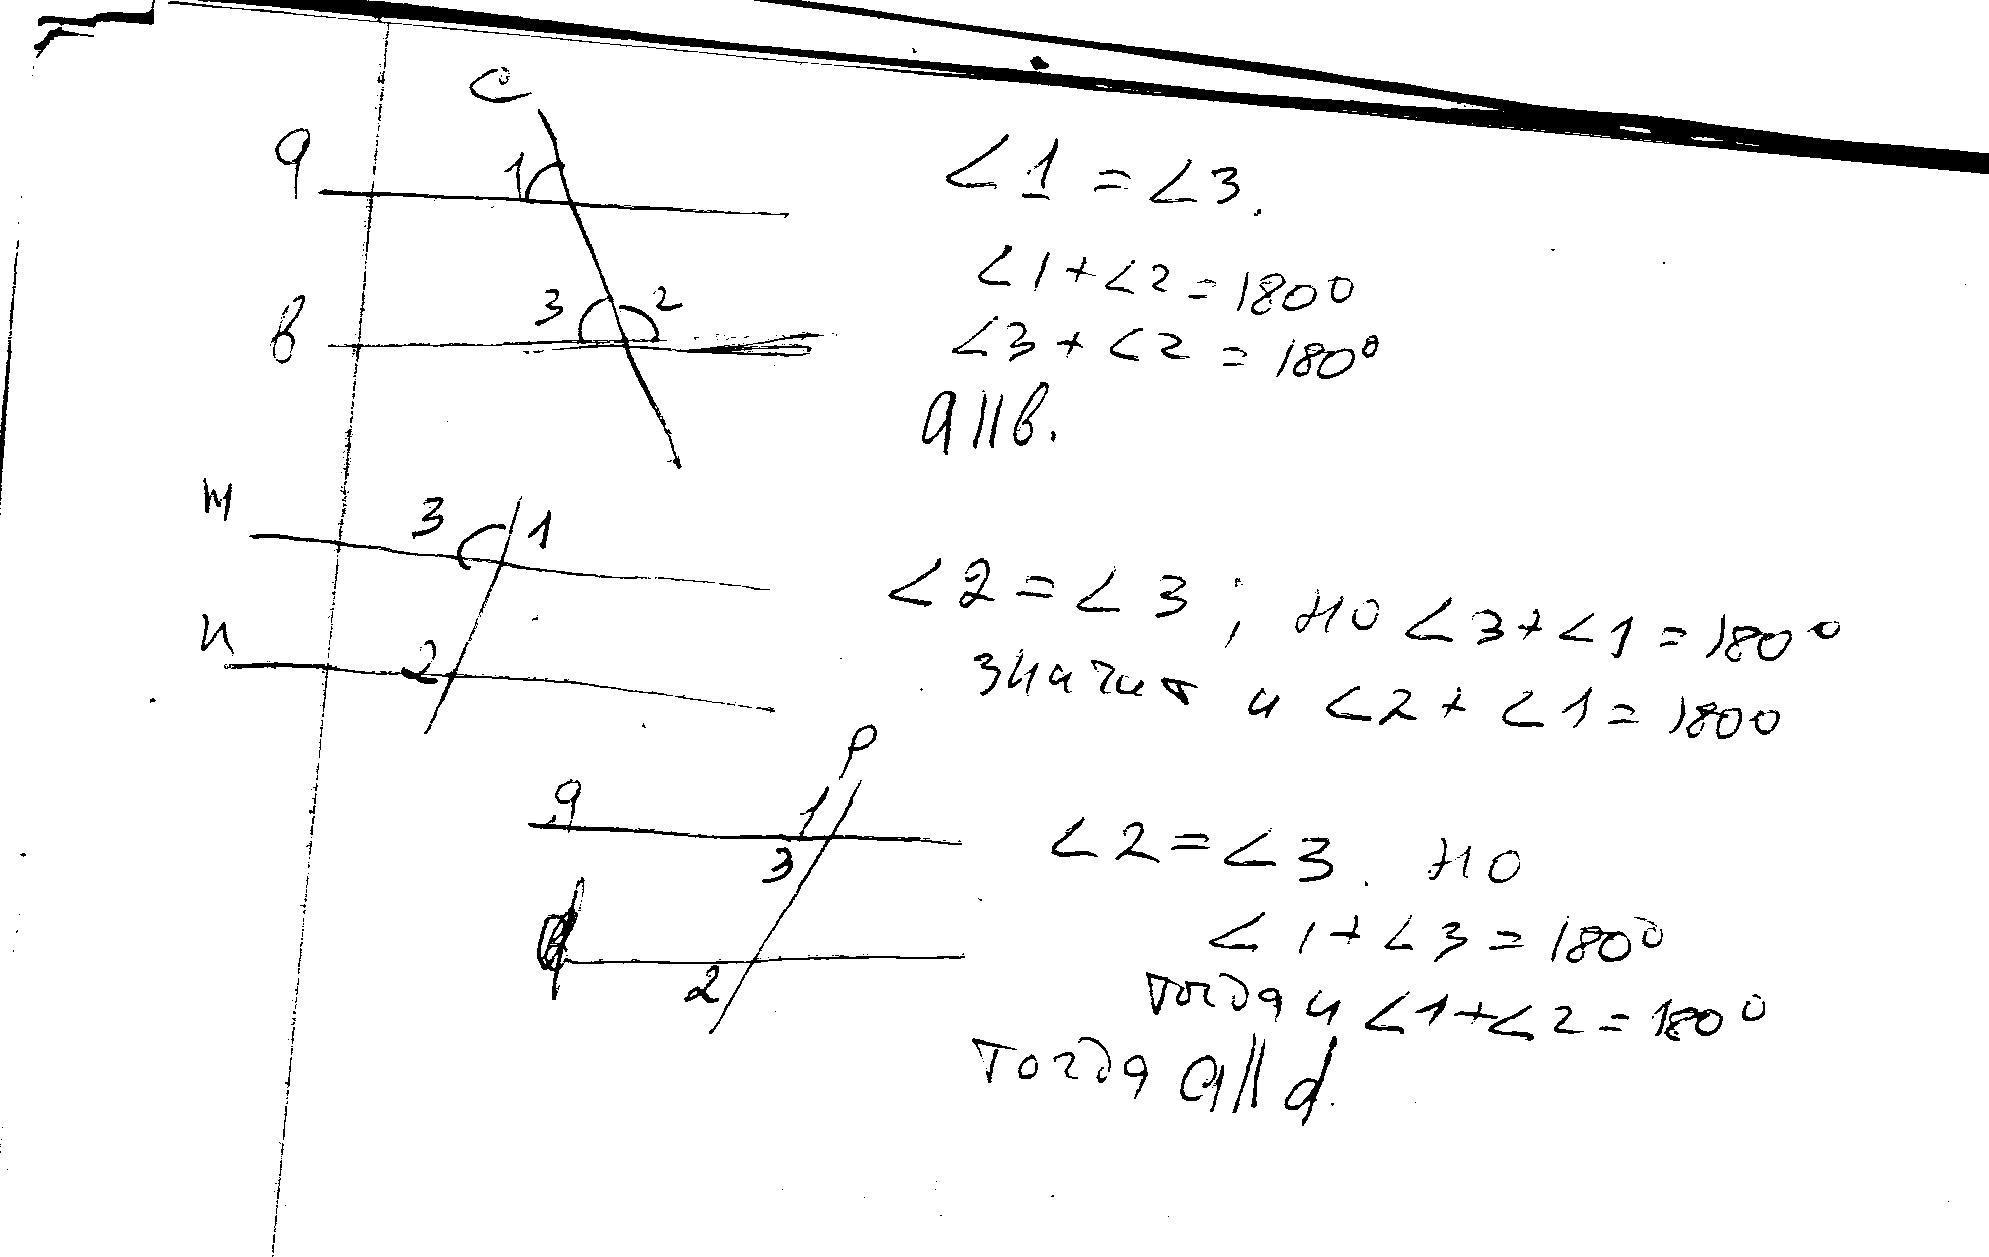 c
a
1
b
3 2
∠1 = ∠3.
∠1 + ∠2 = 180°
∠3 + ∠2 = 180°
a || b.
m
3 1
n
2
∠2 = ∠3; но ∠3 + ∠1 = 180°
значит и ∠2 + ∠1 = 180
p
a
1
3
d
2
∠2 = ∠3. но
∠1 + ∠3 = 180°
тогда и ∠1 + ∠2 = 180°
тогда a || d.